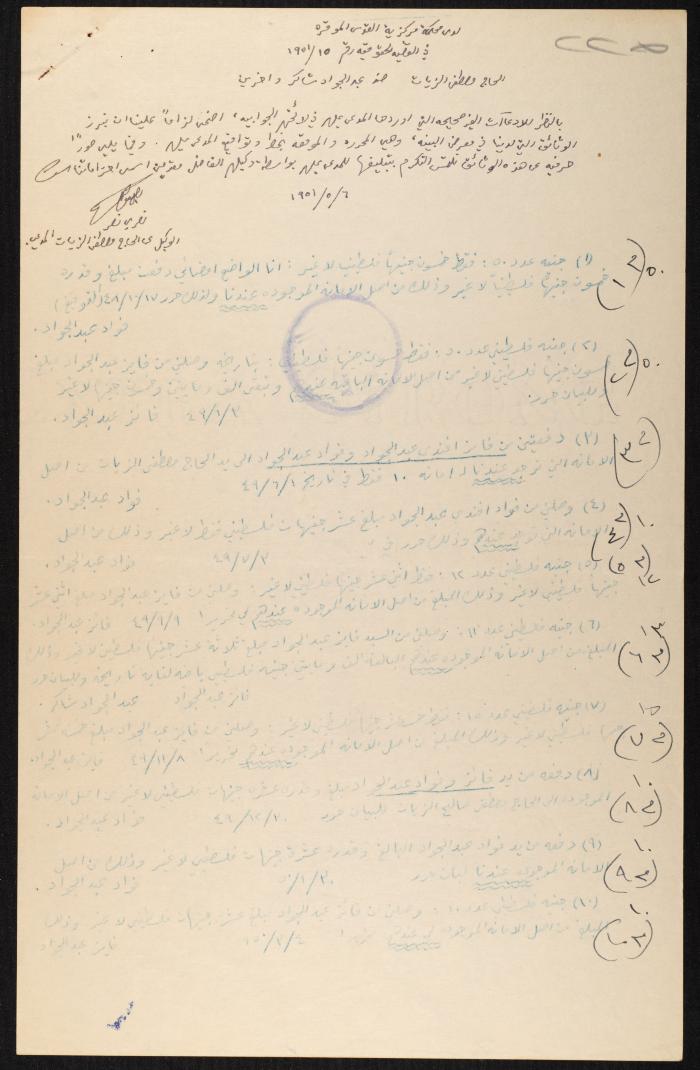 لدى محكمة مركزية القدس الموقره
في القضيه الحقوقيه رقم ١٩٥١/١٥
الحاج مصطفى الزيات ضد عبد الجواد شاكر واخرين
بالنظر للادعاآت الغير صحيحه التي اوردها المدعى عليهم في لائحتهم الجوابيه، اصبحن لزاماً علينا ان نبرز
الوثائق التي لدينا في معرض البينه، وهي المحرره والموقعه بخط وتواقيع المدعى عليهم. وفيما يلي صوراً
حرفيه عن هذه الوثائق نلتمس التكرم بتبليغها للمدعى عليهم بواسطة وكيلهم الفاضل
١٩٥١/٥/٦
نصري نصر
الوكيل عن الحاج مصطفى الزيات المدعي.
(١) جنيه عدد ٥٠: فقط خمسون جنيهاً فلسطينيا لا غير: انا الواضع امضائي دفعت مبلغ وقدره
خمسون جنيهاً فلسطينياً لا غير وذلك من اصل الامانه الموجوده عندنا ولذلك حرر ٤٨/١٢/١٧ (التوقيع)
فؤاد عبد الجواد.
٥٠ (م١)
(٢) جنيه فلسطيني عدد ٥٠: فقط خمسون جنيهاً فلسطيني: بتاريخه وصلني من فايز عبد الجواد مبلغ
خمسون جنيهاً فلسطيني لا غير من اصل الامانه الباقيه عندهم وتبقى الف ومايتين وخمسون جنيهاً لا غير
وللبيان حرر. ٤٩/١/٣ فائز عبد الجواد.
٥٠ (م٢)
(٣) دفعتين من فائز افندي عبد الجواد وفؤاد عبد الجواد الى يد الحاج مصطفى الزيات من اصل
الامانه التي توجد عندنا له امانه ١٠ فقط في تاريخ ٤٩/٦/١ فؤاد عبد الجواد.
(م٣)
(٤) وصلني من فؤاد افندي عبد الجواد مبلغ عشر جنيهات فلسطيني فقط لا غير وذلك من اصل
الامانه التي توجد عندهم وذلك حرر في ٤٩/٧/٣ فؤاد عبد الجواد.
١٠ (م٤)
(٥) جنيه فلسطيني عدد ١٢: فقط اثنى عشر جنيهاً فلسطيني لا غير: وصلني من فايز عبد الجواد مبلغ اثنى عشر
جنيهاً فلسطيني لا غير وذلك المبلغ من اصل الامانه الموجوده عندهم لي تحريرا ٤٩/٩/١ فائز عبد الجواد.
١٢ (م٥)
(٦) جنيه فلسطيني عدد ١٣: وصلني من السيد فايز عبد الجواد مبلغ ثلاثة عشر جنيهاً فلسطيني لا غير وذلك
المبلغ من اصل الامانه الموجوده عندهم البالغه الف ومايتين جنيه فلسطيني لغاية تاريخه وللبيان حرر
فائز عبد الجواد عبد الجواد شاكر.
١٣ (م٦)
(٧) جنيه فلسطيني عدد ١٥: فقط خمسة عشر جنيهاً فلسطيني لا غير: وصلني من فايز عبد الجواد مبلغ خمسة عشر
جنيهاً فلسطيني لا غير وذلك المبلغ من اصل الامانه الموجوده عندهم تحريرا ٤٩/١١/٨ فايز عبد الجواد.
١٥ (م٧)
(٨) دفعه من يد فائز وفؤاد عبد الجواد مبلغ وقدره عشرة جنيهات فلسطيني لا غير من اصل الامانه
الموجوده الى الحاج مصطفى صالح الزيات للبيان حرر ٤٩/١٢/٢٠ فؤاد عبد الجواد.
١٠ (م٨)
(٩) دفعه من يد فؤاد عبد الجواد البالغ وقدره عشرة جنيهات فلسطيني لا غير وذلك من اصل
الامانه الموجوده عندنا لبيان حرر ٥٠/١/٣٠ فؤاد عبد الجواد.
١٠ (م٩)
(١٠) جنيه فلسطيني عدد ١٠: وصلني من فائز عبد الجواد مبلغ عشر جنيهات فلسطيني لا غير وذلك
المبلغ من اصل الامانه الموجوده لي عندهم تحريرا ٥٠/٣/٤ فايز عبد الجواد
١٠ (م١٠)